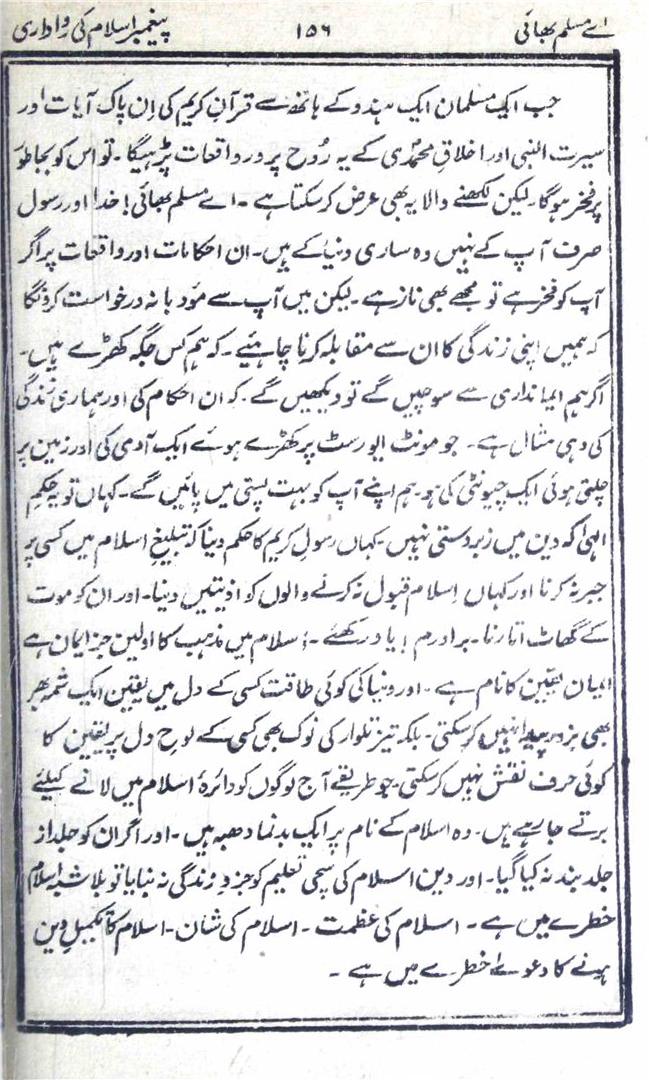 اے مسلم بھائی ۱۵۶ پیغمبر اسلام کی رواداری
جب ایک مسلمان ایک ہندو کے ہاتھ سے قرآن کریم کی اِن پاک آیات اور
سیرت النبی اور اخلاقِ محمدؐی کے یہ رُوح پرور واقعات پڑہیگا۔ تو اس کو بجا طور
پر فخر ہوگا۔ لیکن لکھنے والا یہ بھی عرض کر سکتا ہے۔ اے مسلم بھائی! خدا اور رسول
صرف آپ کے نہیں وہ ساری دنیا کے ہیں۔ ان احکامات اور واقعات پر اگر
آپ کو فخر ہے تو مجھے بھی ناز ہے۔ لیکن میں آپ سے مؤدبانہ درخواست کرونگا
کہ ہمیں اپنی زندگی کا ان سے مقابلہ کرنا چاہیئے۔ کہ ہم کس جگہ کھڑے ہیں۔
اگر ہم ایمانداری سے سوچیں گے تو دیکھیں گے۔ کہ ان احکام کی اور ہماری زندگی
کی وہی مثال ہے۔ جو مونٹ ایورسٹ پر کھڑے ہوئے ایک آدمی کی اور زمین پر
چلتی ہوئی ایک چیونٹی کی ہو۔ ہم اپنے آپ کو بہت پستی میں پائیں گے۔ کہاں تو یہ حکمِ
الہٰی کہ دین میں زبردستی نہیں۔ کہاں رسولِ کریم کا حکم دینا کہ تبلیغِ اسلام میں کسی پر
جبر نہ کرنا اور کہاں اِسلام قبول نہ کرنے والوں کو اذیتیں دینا۔ اور ان کو موت
کے گھاٹ اتارنا۔ برادرم! یاد رکھئے۔ اِسلام میں مذہب کا اولین جز ایمان ہے
ایمان یقین کا نام ہے۔ اور دنیا کی کوئی طاقت کسی کے دل میں یقین ایک شمہ بھر
بھی بزور پیدا نہیں کر سکتی۔ بلکہ تیز تلوار کی نوک بھی کسی کے لوحِ دل پر یقین کا
کوئی حرف نقش نہیں کر سکتی۔ جو طریقے آج لوگوں کو دائرۂ اسلام میں لانے کیلئے
برتے جا رہے ہیں۔ وہ اسلام کے نام پر ایک بدنما دھبہ ہیں۔ اور اگر ان کو جلد از
جلد بند نہ کیا گیا۔ اور دین اسلام کی سچی تعلیم کو جزوِ زندگی نہ بنایا تو بلا شبہ اسلام
خطرے میں ہے۔ اسلام کی عظمت۔ اسلام کی شان۔ اسلام کا تکمیلِ دین
ہونے کا دعوےٰ خطرے میں ہے۔